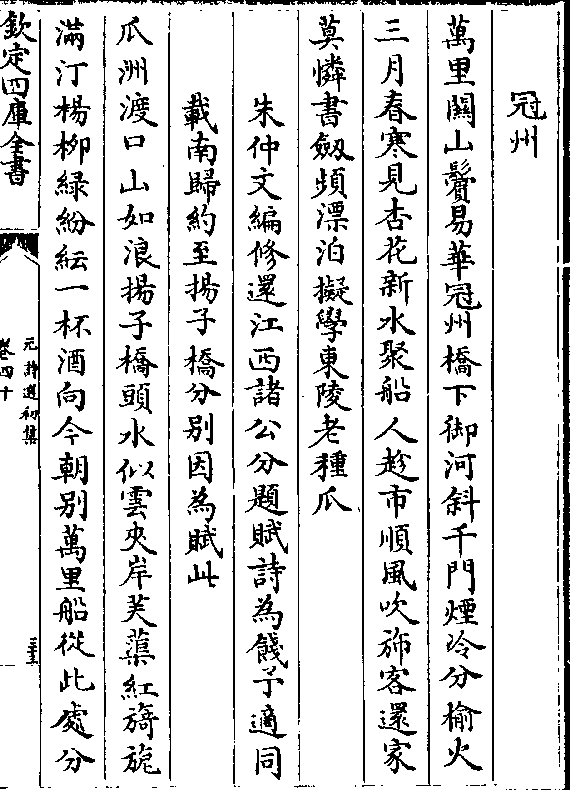 冠州
萬里闗山鬢易華冠州橋下御河斜千門煙冷分榆火
三月春寒見杏花新水聚船人趁市順風吹斾客還家
莫憐書劔頻漂泊擬學東陵老種瓜
朱仲文編修還江西諸公分題賦詩為餞予適同
載南歸約至揚子橋分别因為賦此
瓜洲渡口山如浪揚子橋頭水似雲夾岸芙蕖紅旖旎
滿汀楊柳緑紛紜一杯酒向今朝别萬里船從此處分
欽定四庫全書
元詩選初集
卷四十
三三